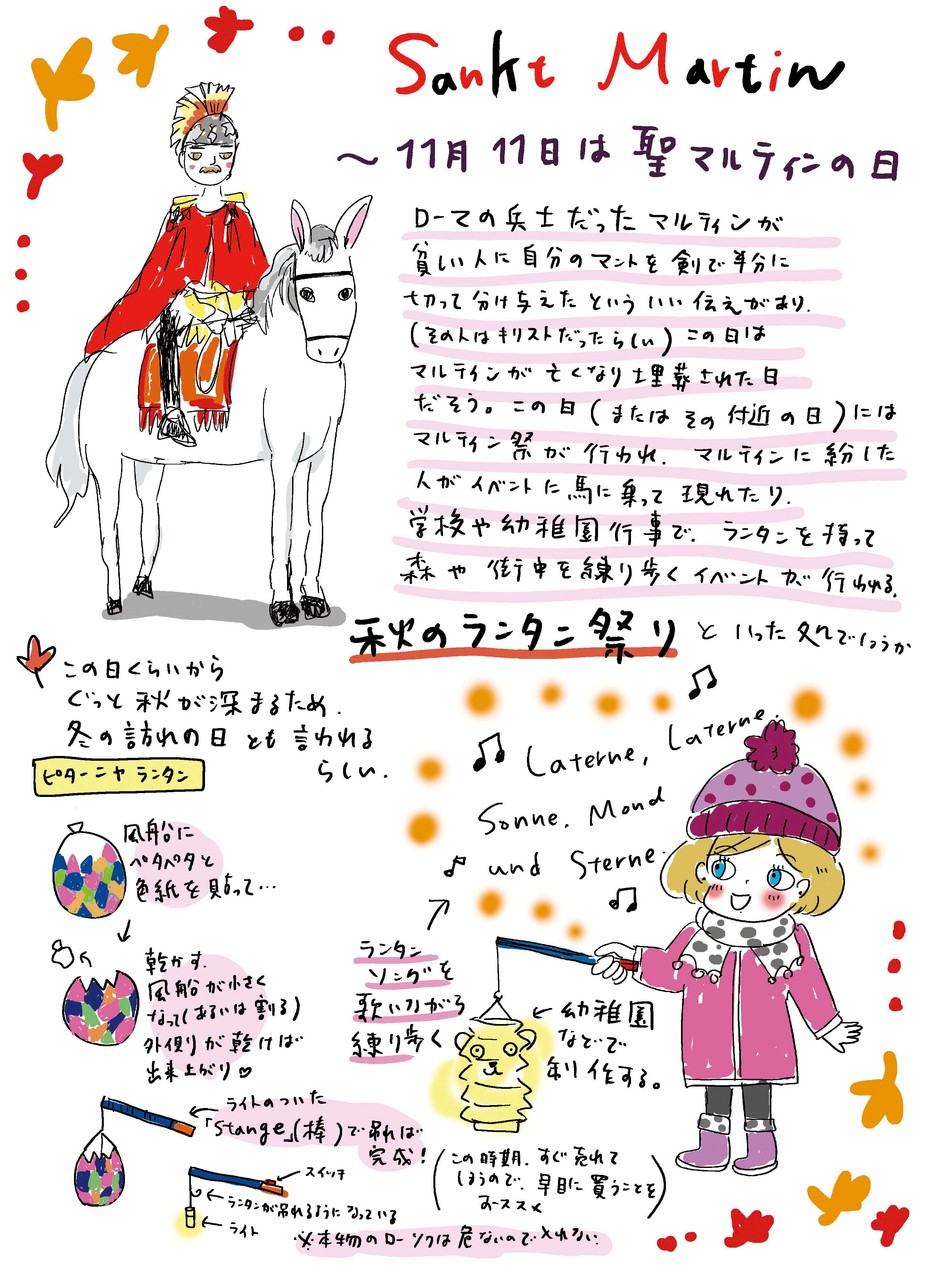 Sankt Martin
～11月11日は聖マルティンの日
ローマの兵士だったマルティンが
貧しい人に自分のマントを剣で半分に
切って分け与えたといういい伝えがあり、
(その人はキリストだったらしい)この日は
マルティンが亡くなり埋葬された日
だそう。この日(またはその付近の日)には
マルティン祭が行われ、マルティンに紛した
人がイベントに馬に乗って現れたり、
学校や幼稚園行事で、ランタンを持って
森や街中を練り歩くイベントが行われる。
秋のランタン祭りといった処でしょうか
この日くらいから
ぐっと秋が深まるため、
冬の訪れの日とも言われる
らしい。
ピターニャランタン
風船に
ペタペタと
色紙を貼って…
乾かす。
風船が小さく
なって(あるいは割る)
外側が乾けば
出来上がり♡
ライトのついた
「Stange」(棒)で吊れば
完成!
スイッチ
ランタンが吊れるようになっている
ライト
※本物のローソクは危ないので入れない
♪Laterne, Laterne,
Sonne, Mond
und Sterne.
ランタン
ソングを
歌いながら
練り歩く
幼稚園
などで
制作する。
(この時期、すぐ売れて
しまうので、早目に買うことを
おススメ)